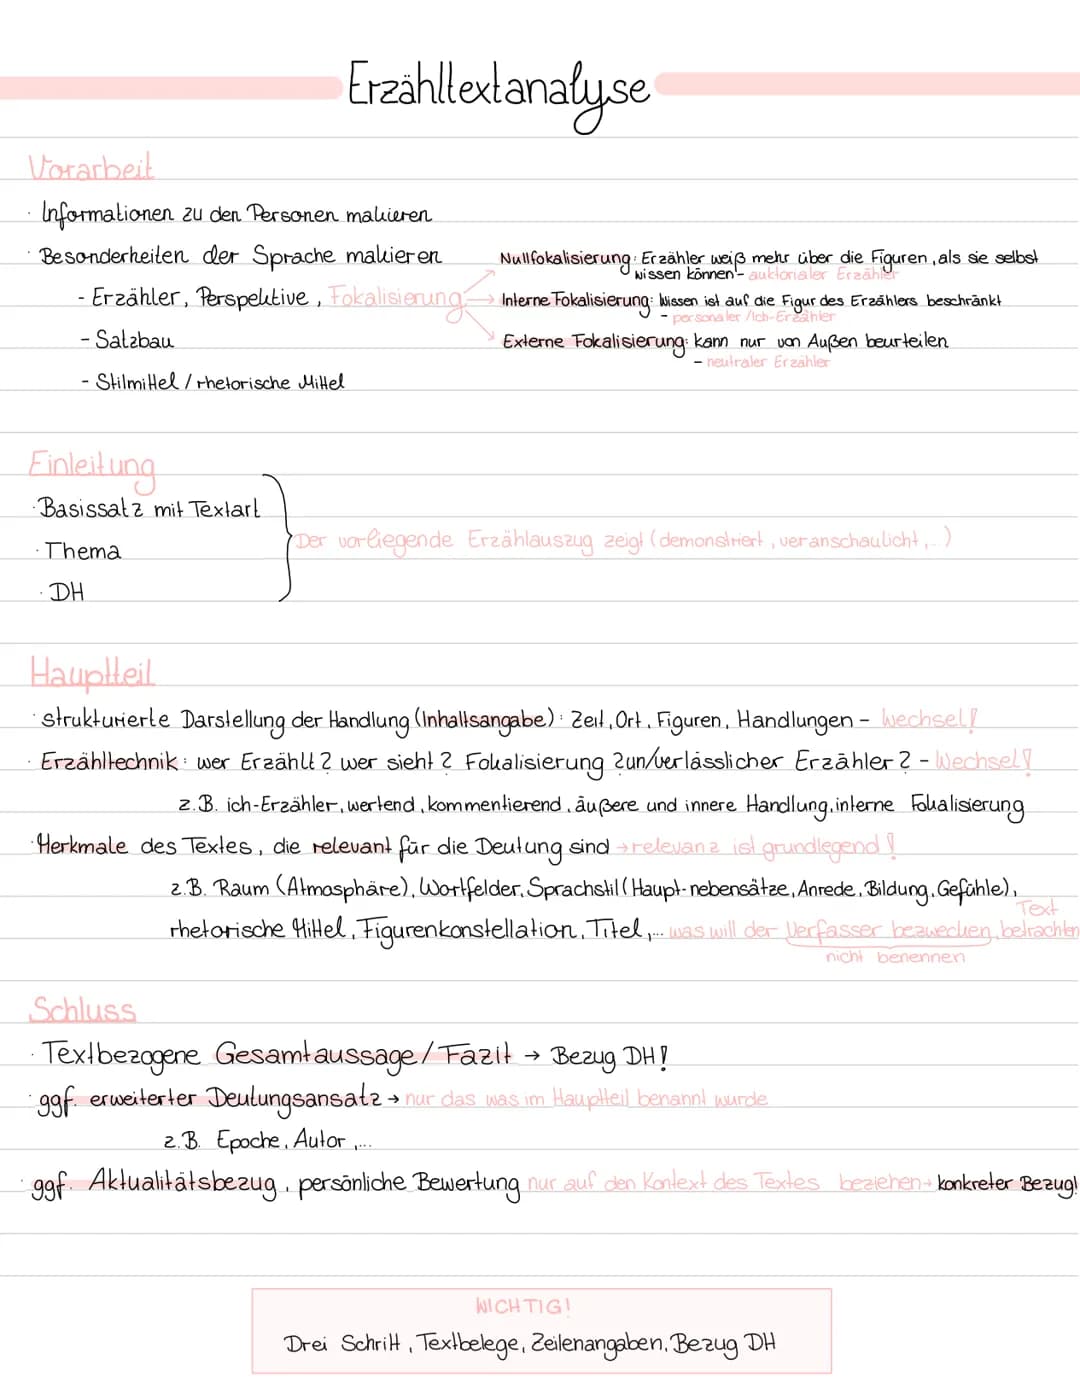 Erzähltextanalyse
Vorarbeit
· Informationen zu den Personen makieren
· Besonderheiten der Sprache makieren
Nullfokalisierung: Erzähler weiß mehr über die Figuren, als sie selbst
wissen können - auktorialer Erzähler
- Erzähler, Perspektive, Fokalisierung → Interne Fokalisierung: Wissen ist auf die Figur des Erzählers beschränkt
- personaler/Ich-Erzähler
- Satzbau
Externe Fokalisierung: kann nur von Außen beurteilen
- neutraler Erzähler
- Stilmittel / rhetorische Mittel
Einleitung
· Basissatz mit Textart
· Thema
Der vorliegende Erzählauszug zeigt (demonstriert, veranschaulicht,...)
· DH
Hauptteil
· strukturierte Darstellung der Handlung (Inhaltsangabe): Zeit, Ort, Figuren, Handlungen - Wechsel!
· Erzähltechnik: wer Erzählt? wer sieht? Fokalisierung? un/verlässlicher Erzähler? - Wechsel!
z.B. ich-Erzähler, wertend, kommentierend, äußere und innere Handlung, interne Fokalisierung
· Merkmale des Textes, die relevant für die Deutung sind → relevanz ist grundlegend!
z.B. Raum (Atmosphäre), Wortfelder, Sprachstil (Haupt-nebensätze, Anrede, Bildung, Gefühle),
rhetorische Mittel, Figurenkonstellation, Titel,... was will der Verfasser bezwecken, Text betrachten
nicht benennen
Schluss
· Textbezogene Gesamtaussage/Fazit → Bezug DH!
· ggf. erweiterter Deutungsansatz → nur das was im Hauptteil benannt wurde
z.B. Epoche, Autor,...
· ggf. Aktualitätsbezug, persönliche Bewertung nur auf den Kontext des Textes beziehen → konkreter Bezug!
WICHTIG!
Drei Schritt, Textbelege, Zeilenangaben, Bezug DH